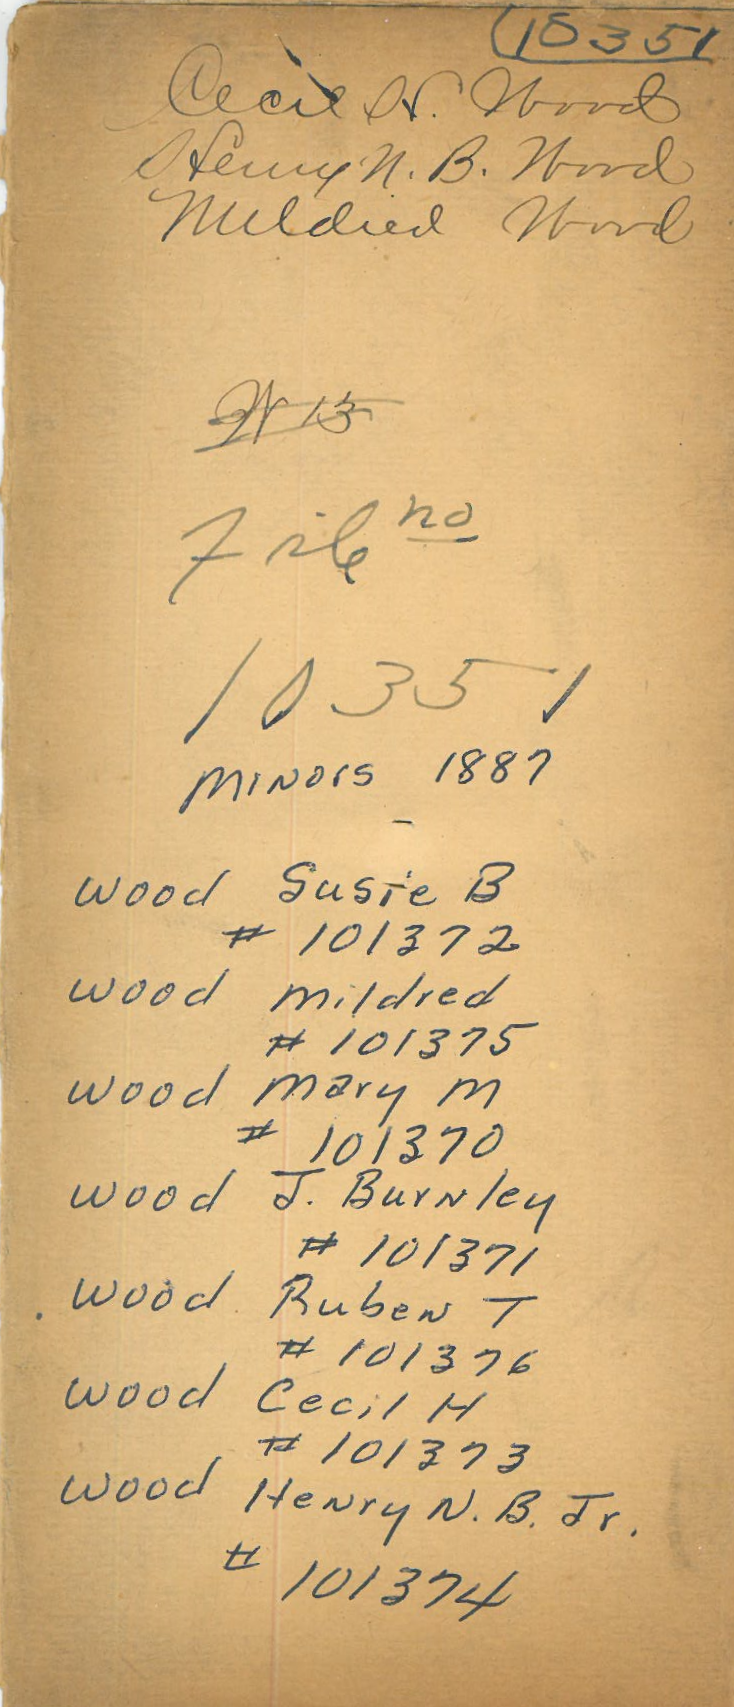 10351
Cecil H. Wood
Henry N. B. Wood
Mildred Wood
W 13
File no
10351
Minors 1887
Wood Susie B
# 101372
Wood Mildred
# 101375
Wood Mary M
# 101370
Wood J. Burnley
# 101371
Wood Ruben T
# 101376
Wood Cecil H
# 101373
Wood Henry N. B. Jr.
# 101374